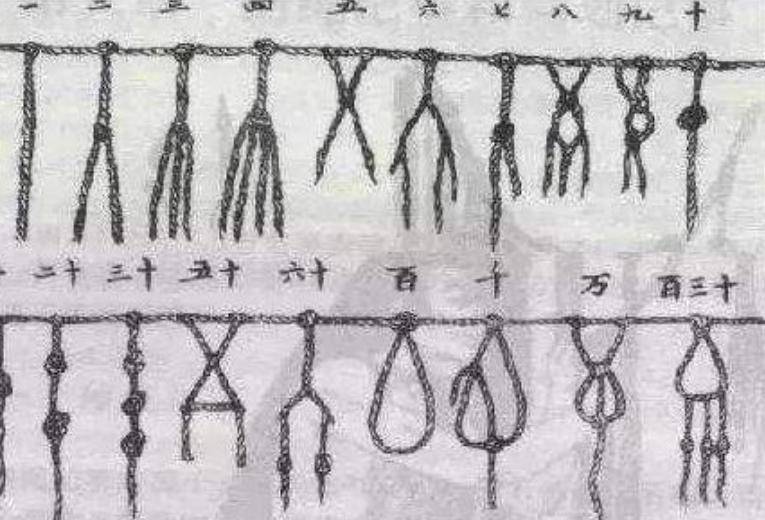 一 二 三 四 五 六 七 八 九 十
二十 三十 五十 六十 百 千 万 百三十